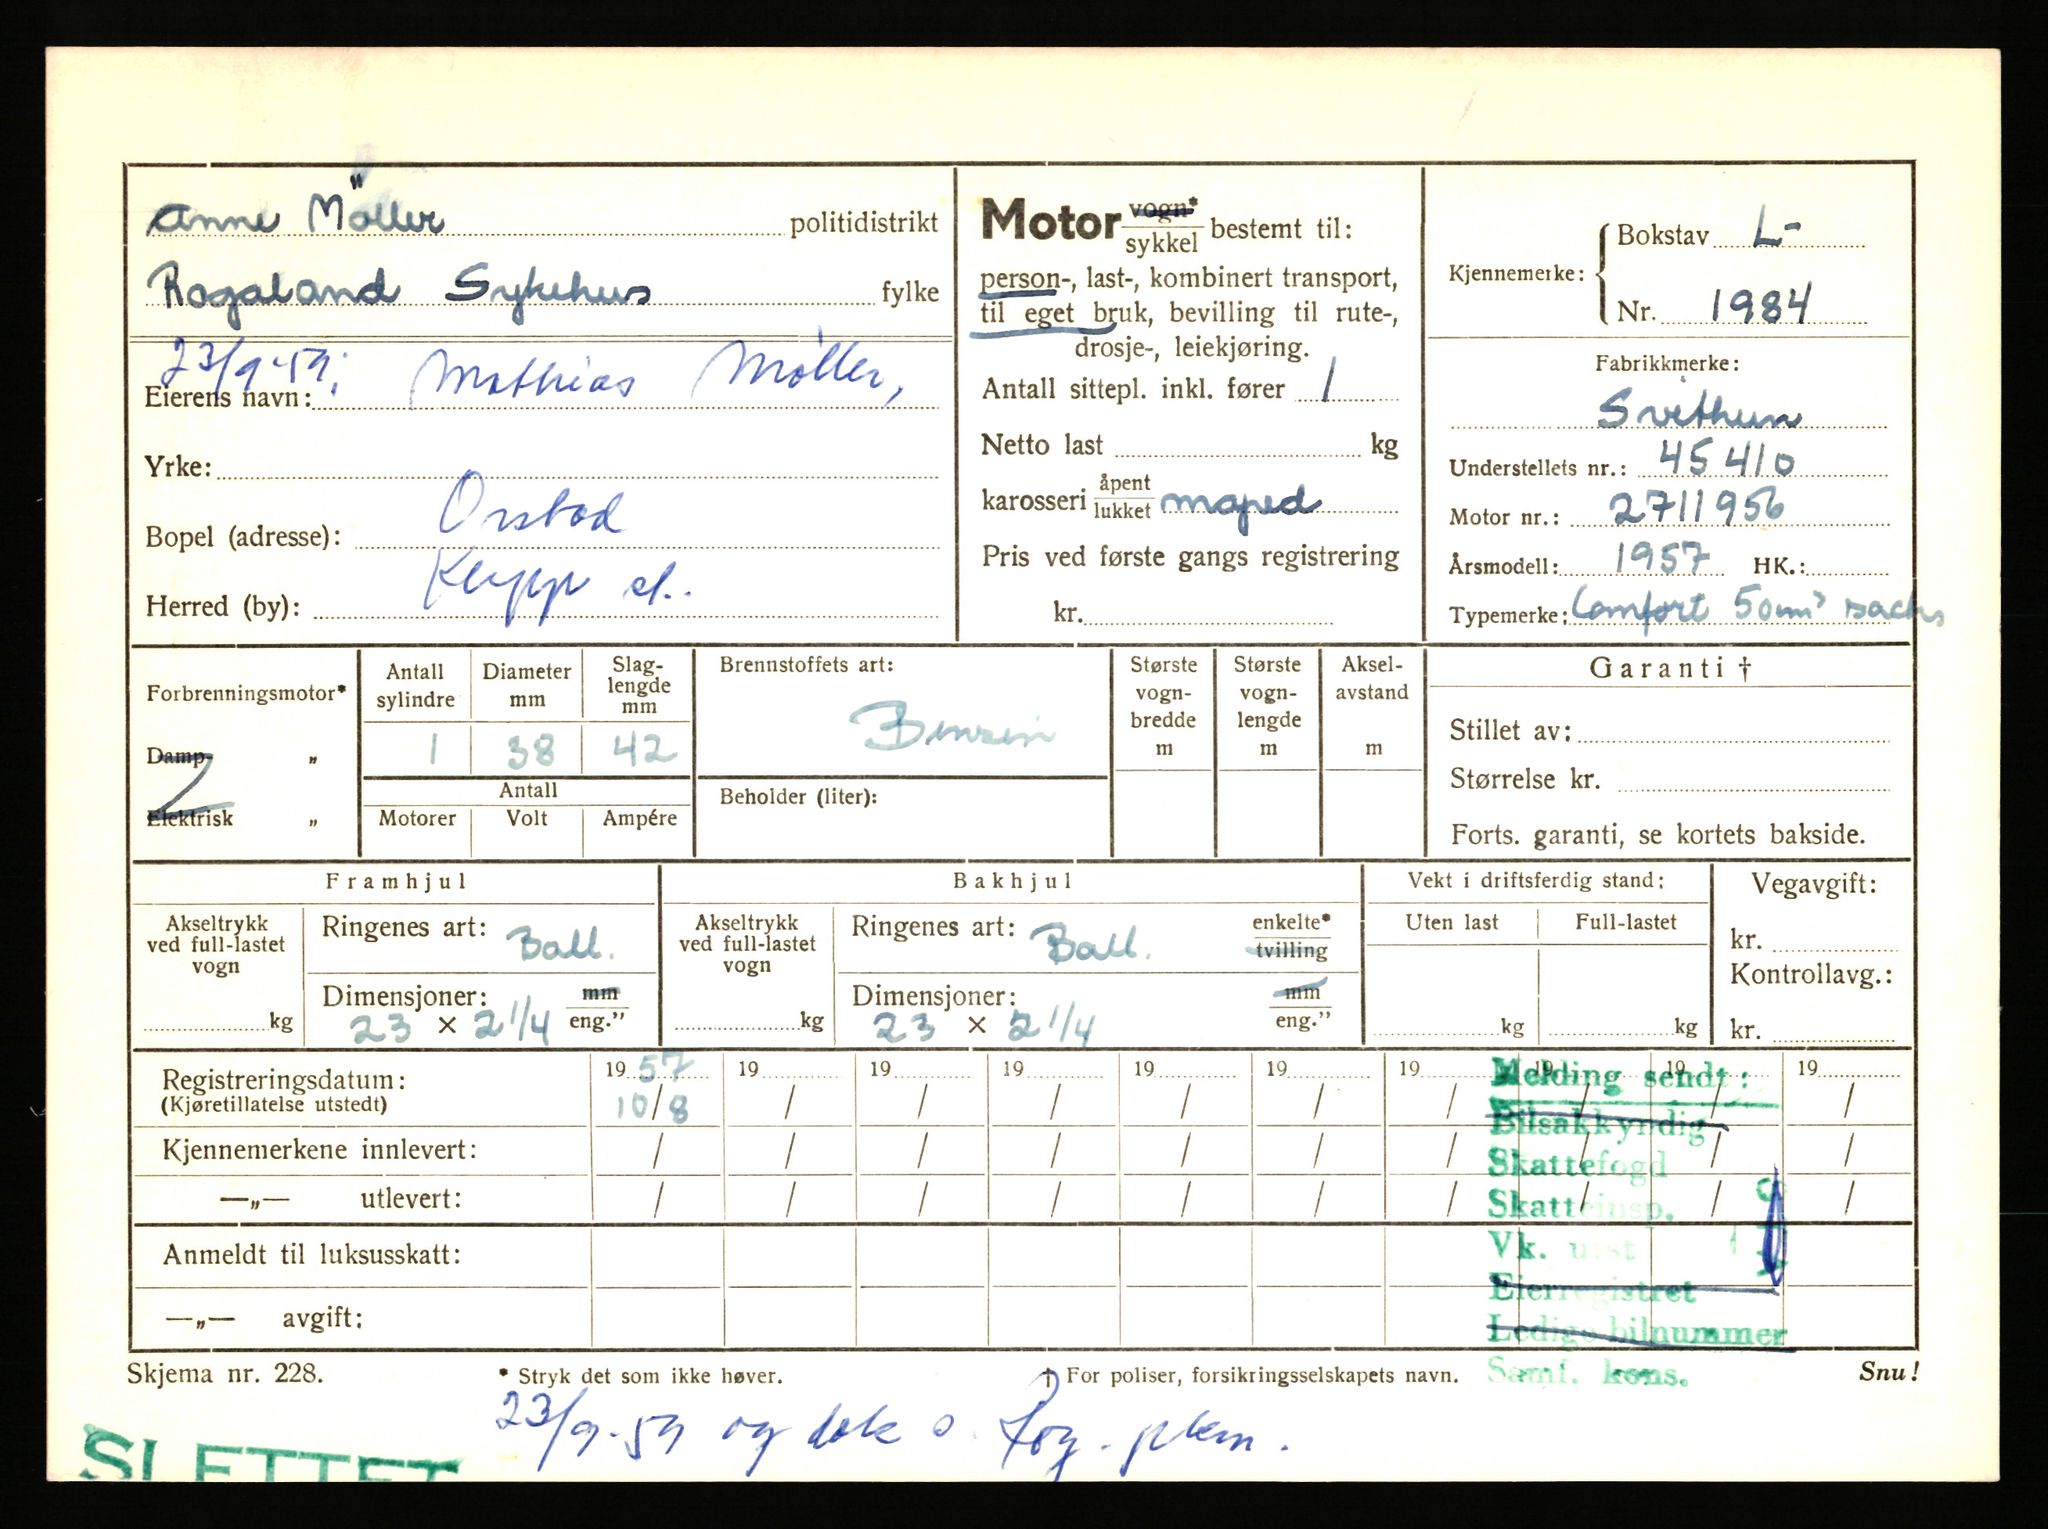 Anne Möller politidistrikt
Rogaland Sykehus fylke
23/9-59; Mathias Møller,
Eierens navn:
Yrke:
Orstad
Bopel (adresse):
Klepp st.
Herred (by):
Motor vogn* / sykkel bestemt til:
person-, last-, kombinert transport,
til eget bruk, bevilling til rute-,
drosje-, leiekjøring.
Antall sittepl. inkl. fører 1
Netto last kg
karosseri åpent / lukket moped
Pris ved første gangs registrering
kr.
Kjennemerke: Bokstav L-
Nr. 1984
Fabrikkmerke:
Svithun
Understellets nr.: 45410
Motor nr.: 2711956
Årsmodell: 1957 HK.:
Typemerke: Comfort 50cm³ sachs
Forbrenningsmotor*
Damp- „
Elektrisk „
Antall sylindre
Diameter mm
Slag-lengde mm
1 38 42
Antall
Motorer Volt Ampére
Brennstoffets art:
Bensin
Beholder (liter):
Største vogn-bredde m
Største vogn-lengde m
Aksel-avstand m
Garanti †
Stillet av:
Størrelse kr.
Forts. garanti, se kortets bakside.
Framhjul
Akseltrykk ved full-lastet vogn
kg
Ringenes art: Ball.
Dimensjoner: mm / eng."
23 × 2 1/4
Bakhjul
Akseltrykk ved full-lastet vogn
kg
Ringenes art: Ball. enkelte* / tvilling
Dimensjoner: mm / eng."
23 × 2 1/4
Vekt i driftsferdig stand:
Uten last Full-lastet
kg kg
Vegavgift:
kr.
Kontrollavg.:
kr.
Registreringsdatum: 19 57 19 19 19 19 19 19 19 19 19
(Kjøretillatelse utstedt) 10/8 / / / / / / / / /
Kjennemerkene innlevert: / / / / / / / / / /
—„— utlevert: / / / / / / / / / /
Anmeldt til luksusskatt:
—„— avgift:
Melding sendt:
Bilsakkyndig
Skattefogd
Skatteinsp.
Vk. utst
Eierregistret
Ledige bilnummer
Samf. kons.
Skjema nr. 228. * Stryk det som ikke høver. † For poliser, forsikringsselskapets navn. Snu!
23/9-59 og
SLETTET